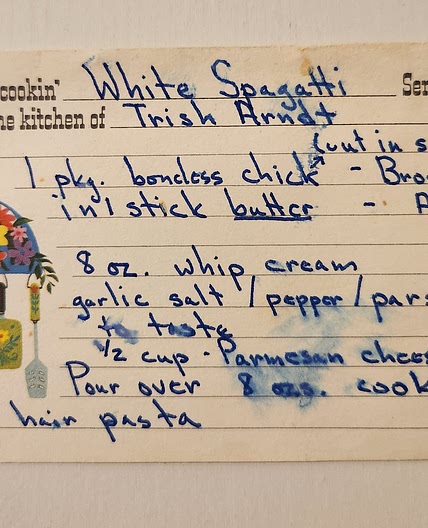 cookin' White Spagatti Ser
he kitchen of Trish Arndt
(cut in s
1 pkg. boneless chick - Bro
in 1 stick butter -
8 oz. whip cream
garlic salt / pepper / pars
to taste
1/2 cup - Parmesan chees
Pour over 8 ozs. cook
hair pasta